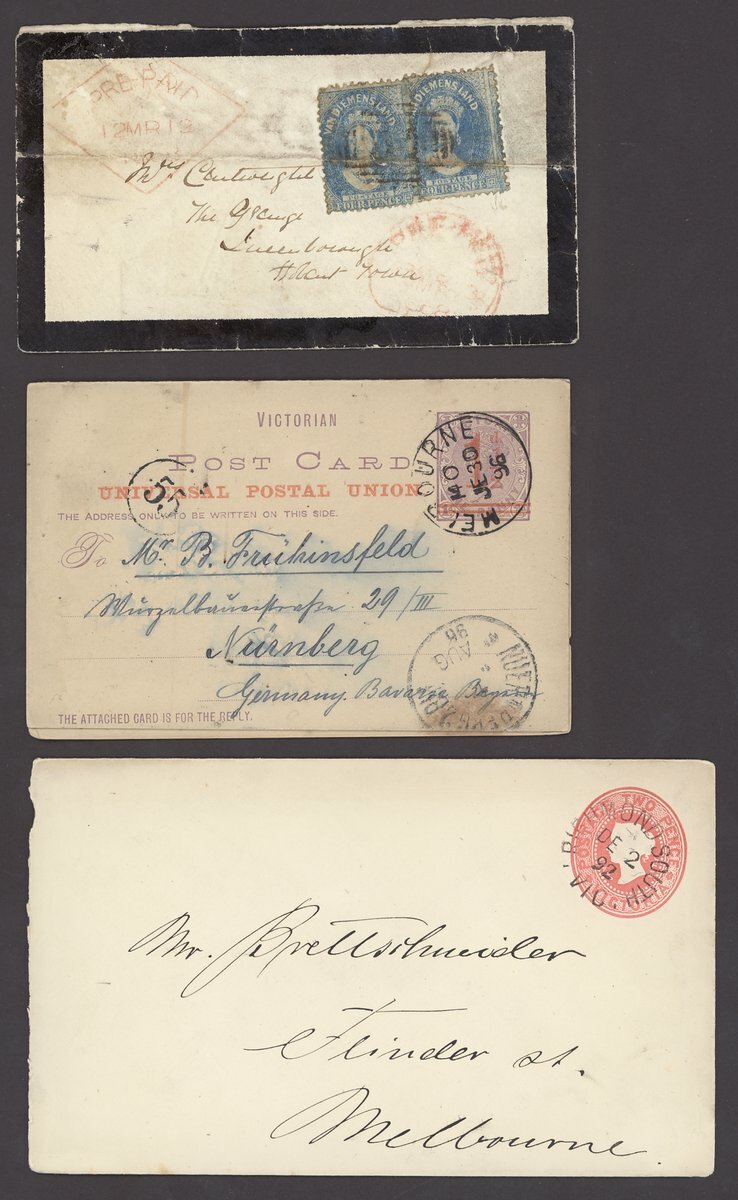 PRE-PAID
12MR12
VAN DIEMENS LAND
POSTAGE
FOUR PENCE
VAN DIEMENS LAND
POSTAGE
FOUR PENCE
Mrs Cartwright
The Grange
Queenborough
Hobart Town
VICTORIAN
POST CARD
UNIVERSAL POSTAL UNION
THE ADDRESS ONLY TO BE WRITTEN ON THIS SIDE.
MELBOURNE
MO
JE 30
96
55
To Mr. B. Frühinsfeld
Wurzelbauerstraße 29/III
Nürnberg
Germany. Bavaria Bayern
THE ATTACHED CARD IS FOR THE REPLY.
AUG
96
TWO PENCE
RICHMOND SOUTH
DE 2
92
VICTORIA
Mr. Brettschneider
Flinder st.
Melbourne.